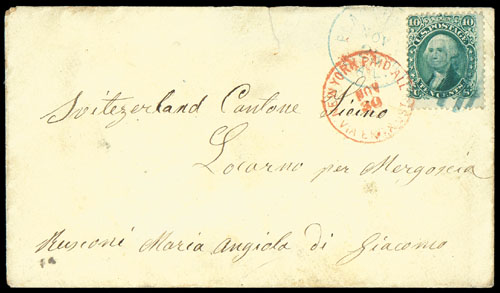 10 U.S. POSTAGE 10
TEN CENTS
NOV
NEW YORK PAID ALL
NOV
Switzerland Cantone Ticino
Locarno per Mergoscia
Rusconi Maria Angiola di Giacomo